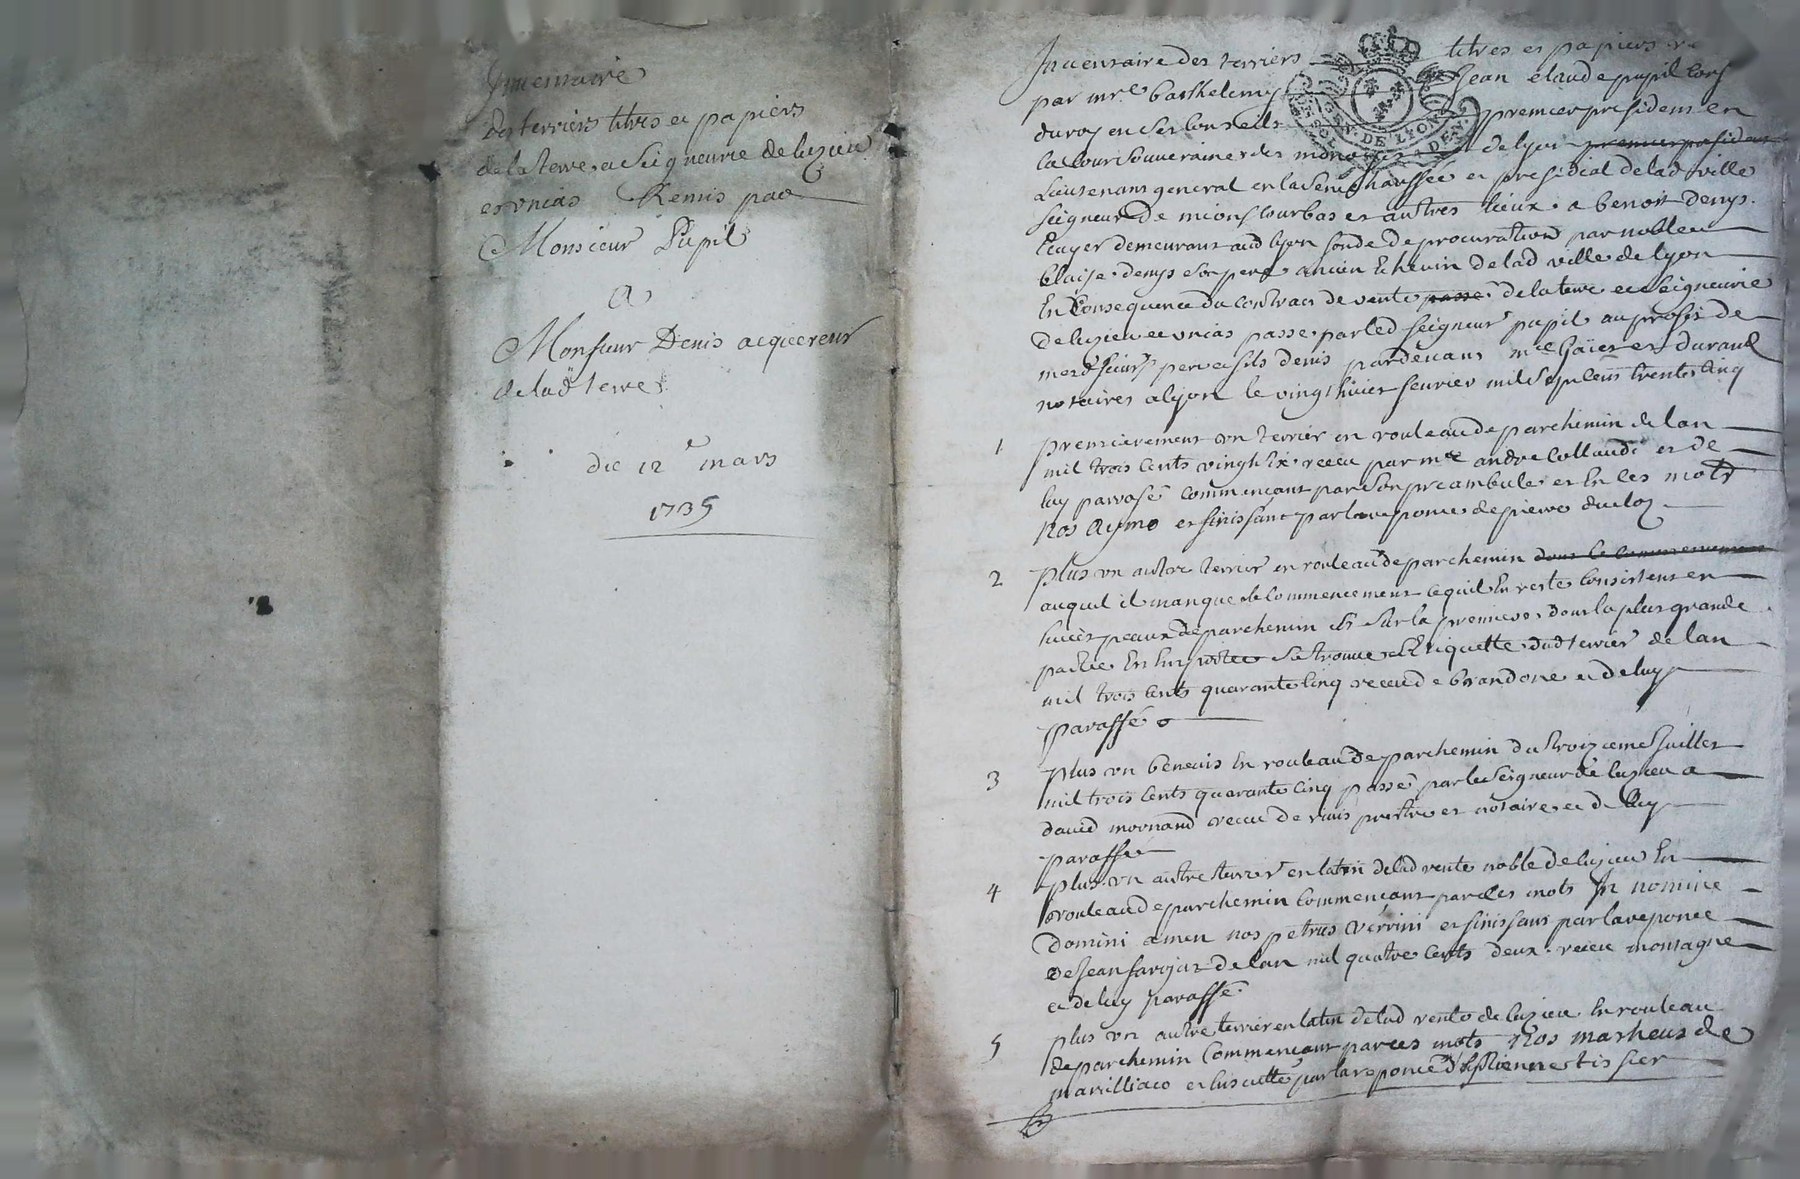 Inventaire
des terriers titres et papiers
de la terre et Seigneurie de luzieu
et unias Remis par
Monsieur Pupil
A
Monsieur Denis acquereur
de lad. terre
du 12e mars
1735
Inventaire des terriers titres et papiers
par mre. barthelemy Jean claude pupil
du roy en ses Conseils premier president en
la Cour Souveraine des monoyes de lyon premier president
Lieutenant general en la Senechaussée et presidial de lad ville
Seigneur de mions Courbas et autres lieux. a benoit denys.
Ecuyer demeurant aud lyon fondé de procuration par noble
blaise denys son pere ancien Echevin de lad ville de lyon
En Consequence du contract de vente passé de la terre et Seigneurie
de luzieu et unias passé par led Seigneur pupil au profit de
mesd. Sieurs pere et fils denis pardevant mes et durand
notaires a lyon le vingt huict fevrier mil Sept Cens trente Cinq
1 premierement un terrier en rouleau de parchemin de lan
mil trois Cents vingt receu par me andre et de
luy paraffé commençant par Son preambule et En Ces mots
Nos Aymo et finissant par la reponce de pierre
2 plus un autre terrier en rouleau de parchemin dont le commencement
auquel il manque le Commencement ce quil En reste Consistant en
huict peaux de parchemin Et Sur la premiere dont la plus grande
partie Se trouve Etiquette dud terrier de lan
mil trois Cents quarante Cinq receu de et de luy
paraffé
3 plus un benevis En rouleau de parchemin du troizieme Juillet
mil trois Cents quarante Cinq passé par le Seigneur de luzieu a
david mornand receu de prestre et notaire et de luy
paraffé
4 plus un autre terrier en latin de lad rente noble de luzieu En
rouleau de parchemin Commençant par Ces mots In nomine
Domini amen nos petrus verrini et finissant par la reponce
de Jean de lan mil quatre Cents deux. receu montagne
et de luy paraffé.
5 plus un autre terrier en latin de lad rente de luzieu En rouleau
de parchemin Commençant par ces mots Nos matheus de
marilliaco et par la reponce destienne tissier